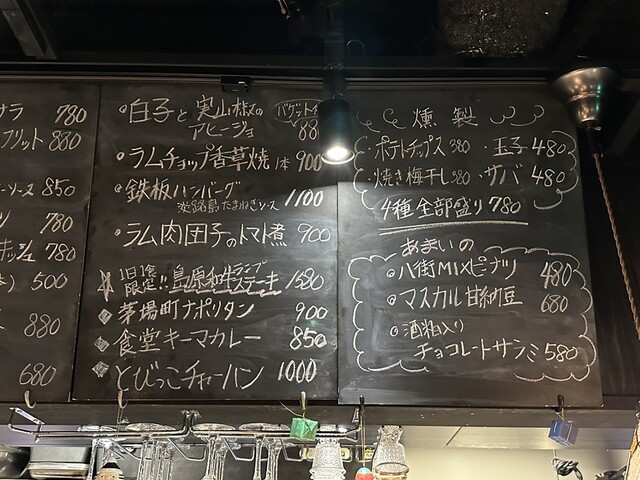 ラ 780
フリット 880
ーソース 850
780
ッシュ 780
500
880
680
・白子と実山椒の
アヒージョ
バゲット
88
・ラムチョップ香草焼 1本 900
・鉄板ハンバーグ
淡路島たまねぎソース 1100
・ラム肉団子のトマト煮 900
1日1食
限定!! 島原和牛ランプ
ステーキ 1580
茅場町ナポリタン 900
食堂キーマカレー 850
とびっこチャーハン 1000
燻製
・ポテトチップス 380 ・玉子 480
・焼き梅干し 380 ・サバ 480
4種全部盛り 780
あまいの
八街MIXピーナツ 480
マスカル甘納豆 680
酒粕入り
チョコレートサラミ 580